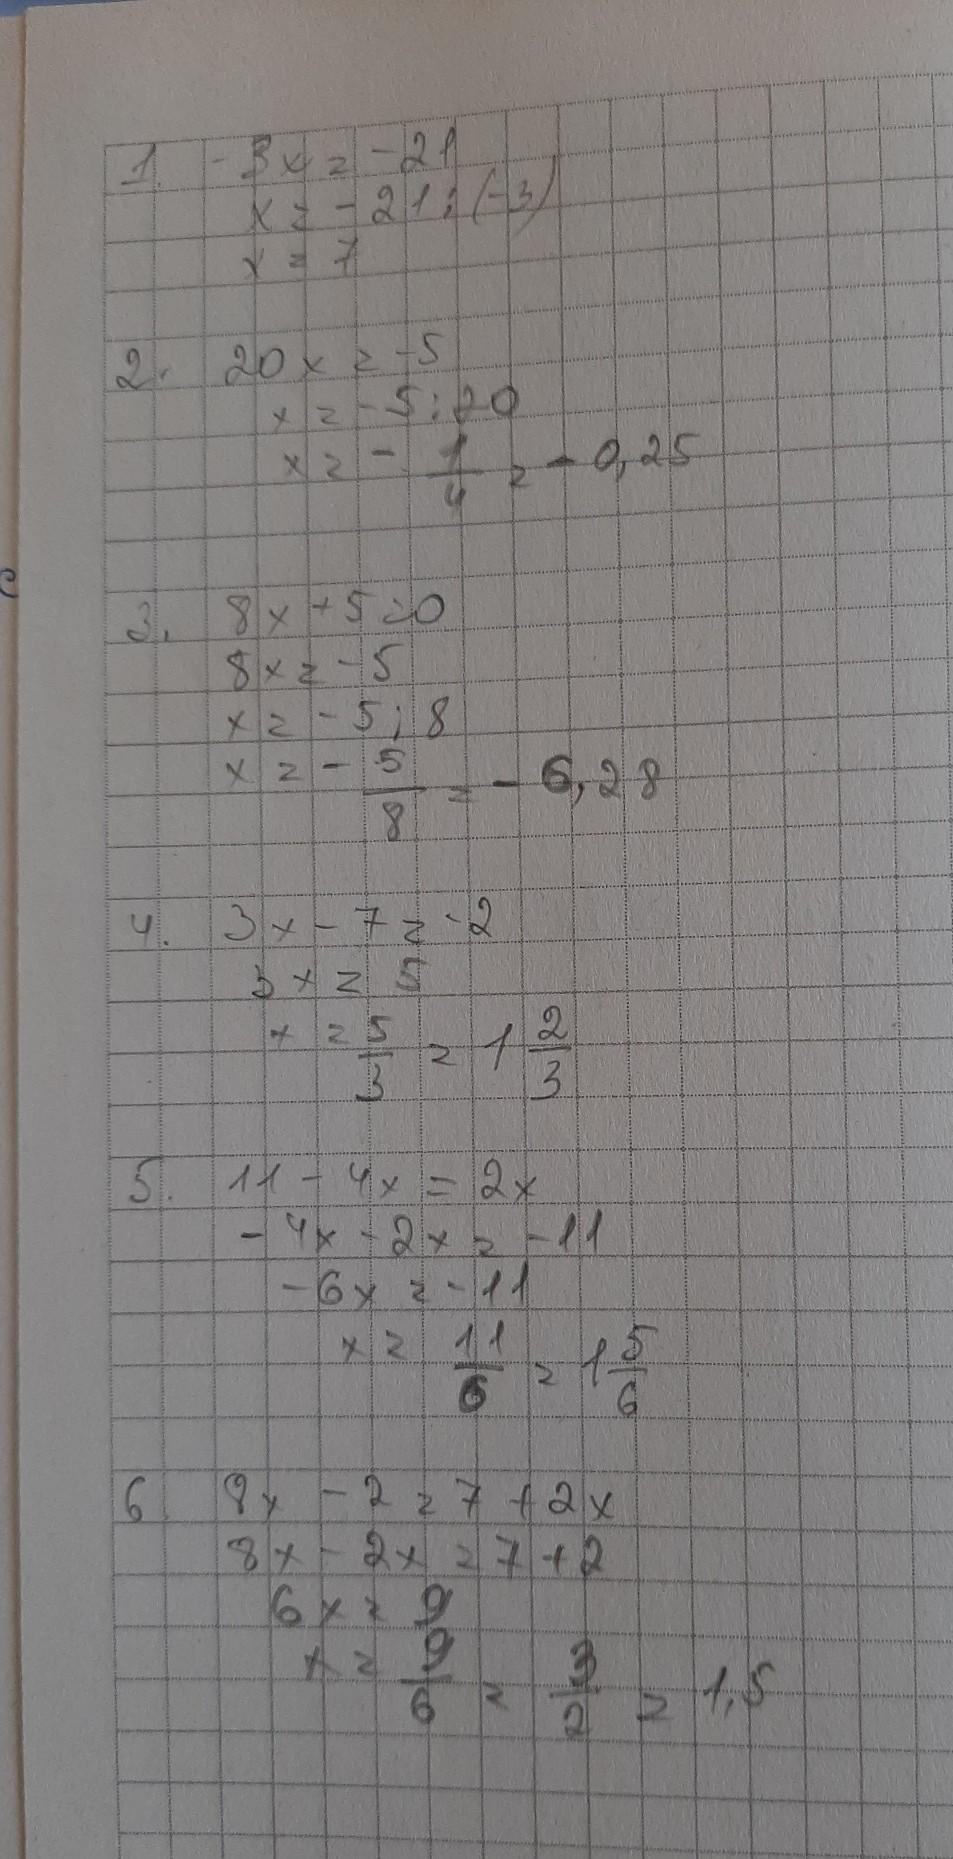 1. -3x = -21
x = -21 : (-3)
x = 7
2. 20x = -5
x = -5 : 20
x = - 1/4 = - 0,25
3. 8x + 5 = 0
8x = -5
x = -5 : 8
x = - 5/8 = - 6,28
4. 3x - 7 = -2
3x = 5
x = 5/3 = 1 2/3
5. 11 - 4x = 2x
- 4x - 2x = -11
-6x = -11
x = 11/6 = 1 5/6
6. 8x - 2 = 7 + 2x
8x - 2x = 7 + 2
6x = 9
x = 9/6 = 3/2 = 1,5